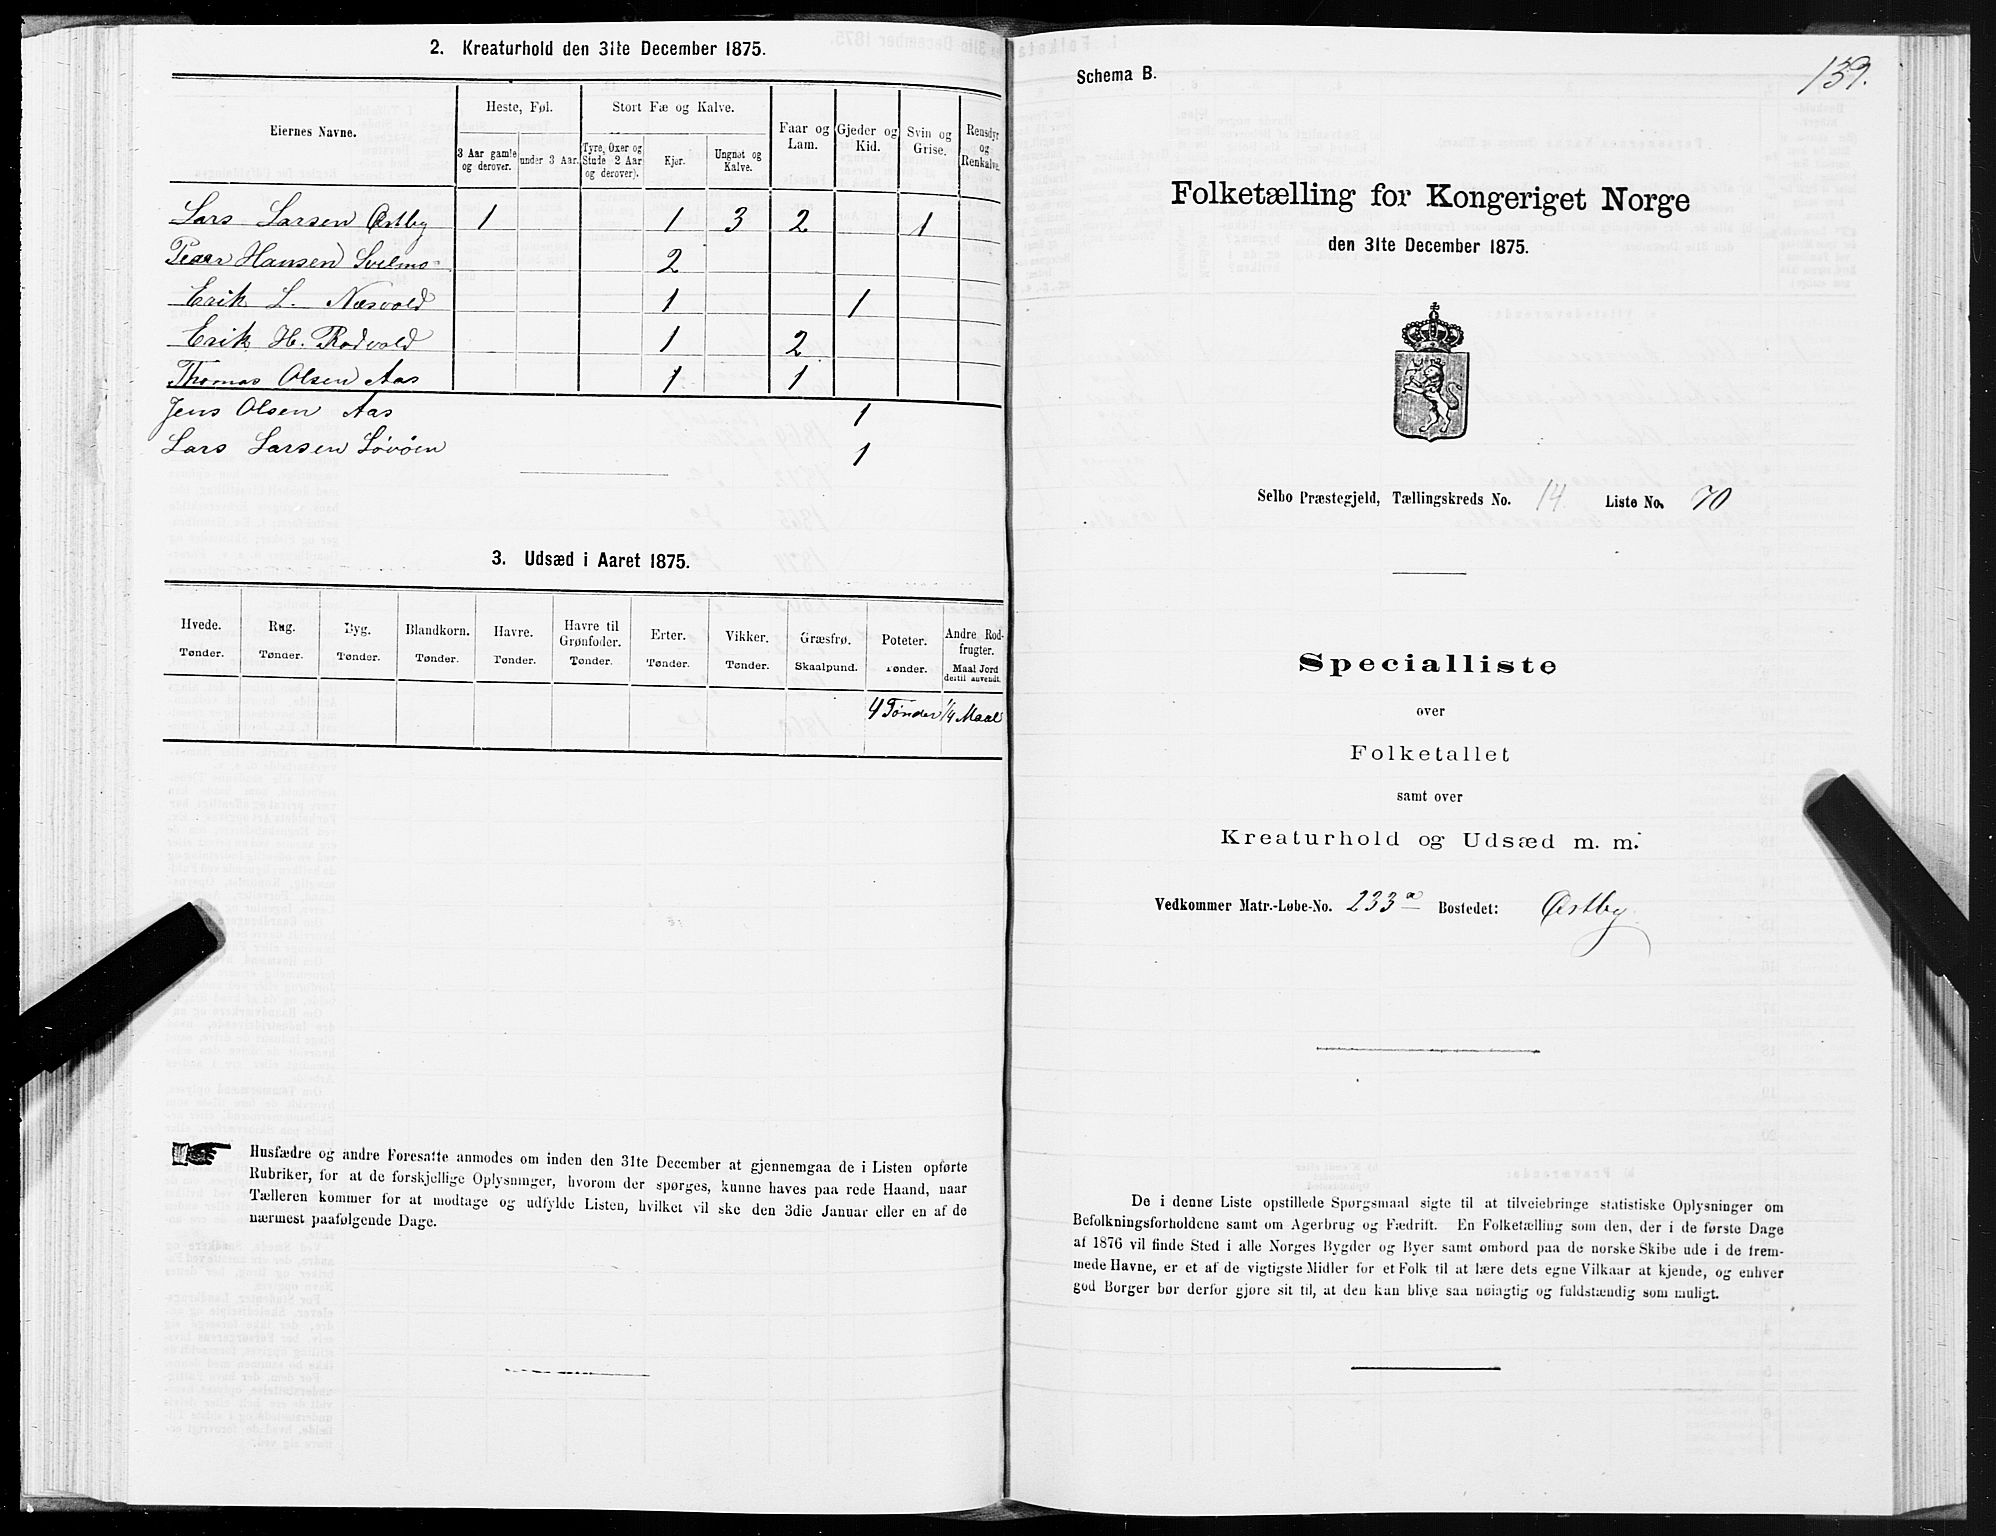 2. Kreaturhold den 31te December 1875.
Eiernes Navne.
Heste, Føl.
Stort Fæ og Kalve.
Faar og Lam.
Gjeder og Kid.
Svin og Grise.
Rensdyr og Renkalve.
3 Aar gamle og derover.
under 3 Aar.
Tyre, Oxer og Stude 2 Aar og derover).
Kjør.
Ungnøt og Kalve.
Lars Larsen Østby 1 1 3 2 1
Peder Hansen Svelmo 2
Erik L. Næsvold 1 1
Erik H. Rodvold 1 2
Thomas Olsen Aas 1 1
Jens Olsen Aas 1
Lars Larsen Løvøen 1
3. Udsæd i Aaret 1875.
Hvede. Rug. Byg. Blandkorn. Havre. Havre til Grønfoder. Erter. Vikker. Græsfrø. Poteter. Andre Rodfrugter.
Tønder. Tønder. Tønder. Tønder. Tønder. Tønder. Tønder. Tønder. Skaalpund. Tønder. Maal Jord dertil anvendt.
4 Tønder 1/4 Maal
Husfædre og andre Foresatte anmodes om inden den 31te December at gjennemgaa de i Listen opførte
Rubriker, for at de forskjellige Oplysninger, hvorom der spørges, kunne haves paa rede Haand, naar
Tælleren kommer for at modtage og udfylde Listen, hvilket vil ske den 3die Januar eller en af de
nærmest paafølgende Dage.
139.
Schema B.
Folketælling for Kongeriget Norge
den 31te December 1875.
Selbo Præstegjeld, Tællingskreds No. 14. Liste No. 70
Specialliste
over
Folketallet
samt over
Kreaturhold og Udsæd m. m.
Vedkommer Matr.-Løbe-No. 233a Bostedet: Østby.
De i denne Liste opstillede Spørgsmaal sigte til at tilveiebringe statistiske Oplysninger om
Befolkningsforholdene samt om Agerbrug og Fædrift. En Folketælling som den, der i de første Dage
af 1876 vil finde Sted i alle Norges Bygder og Byer samt ombord paa de norske Skibe ude i de frem-
mede Havne, er et af de vigtigste Midler for et Folk til at lære dets egne Vilkaar at kjende, og enhver
god Borger bør derfor gjøre sit til, at den kan blive saa nøiagtig og fuldstændig som muligt.